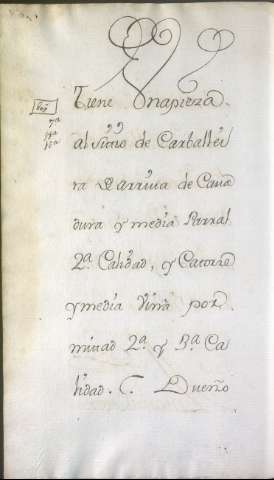 Tiene Vnapieza
al Sitio de Carballei
ra De arriva de Cava
dura y media Parral
2ª Calidad, y Catorce
y media Viña por
mitad 2ª y 3ª Ca
lidad. C. Dueño